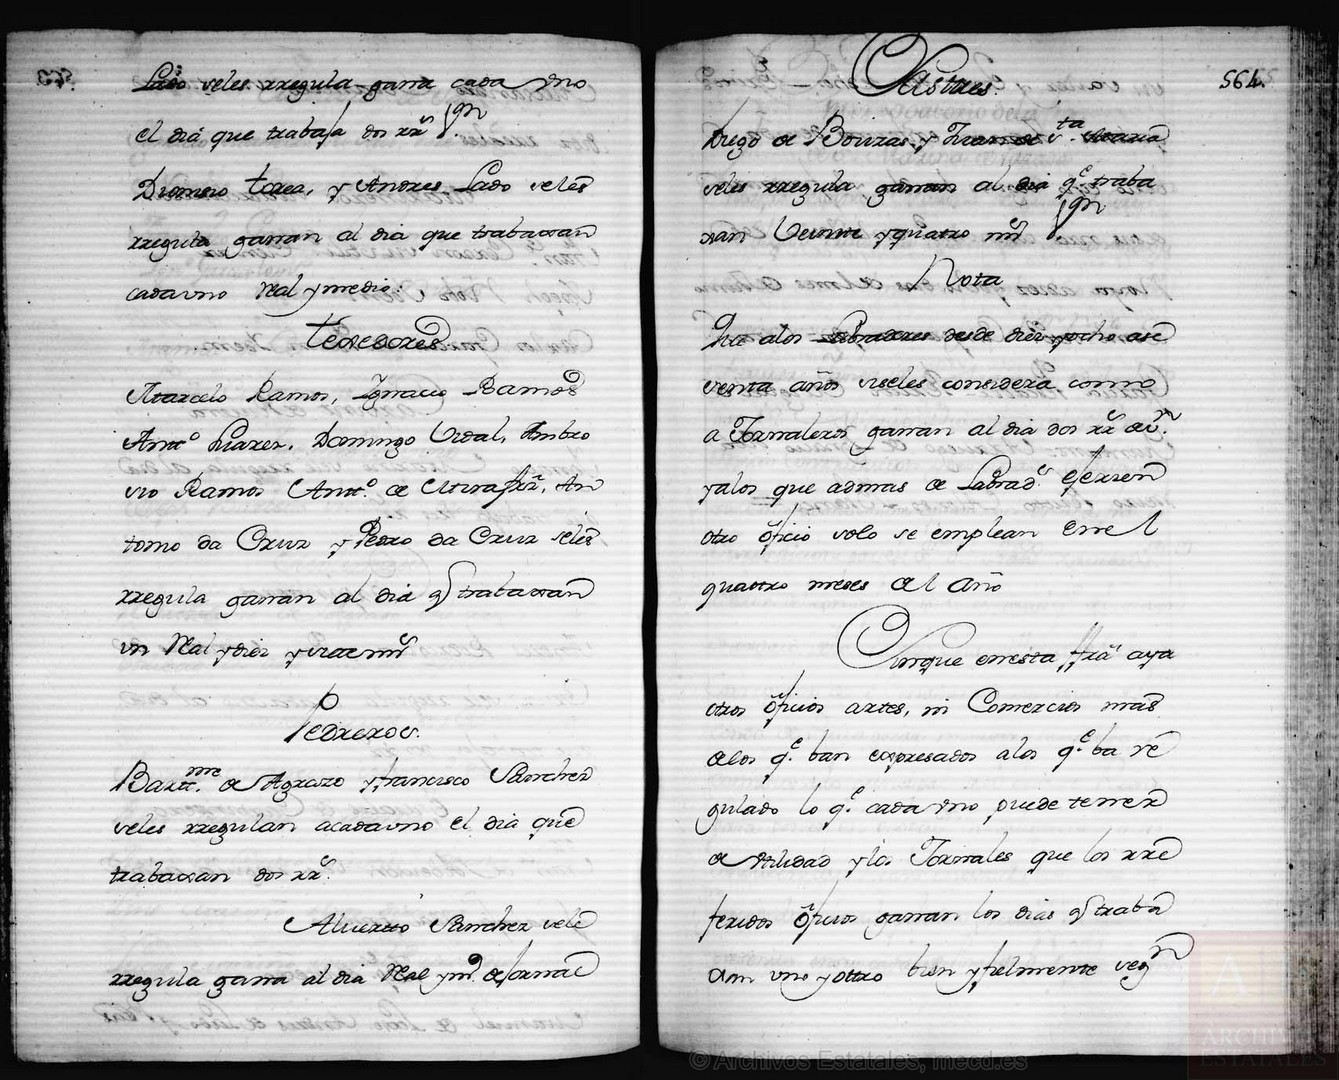 Lado seles rregula ganna cada vno
el dia que trabaja dos rrs vn
Dionisio Correa, y Andres Lado seles
rregula gannan al dia que trabaxan
cadauno Real y medio.
Texedores
Marcelo Ramos, Ignacio Ramos
Antto Suarez, Domingo Vidal, Ambro
sio Ramos Antto. de frz, An
tonio da Cruz y Pedro da Cruz seles
rregula gannan al dia q trabaxan
vn Real y diez y siete mrs
Pedreros.
Bartme. de Agrazo y francisco Sanchez
seles rregulan acadauno el dia que
trabaxan dos rrs.
Alverto Sanchez sele
rregula ganna al dia Real y mo. de
564.
Sastres
Diego de Bouzas, y Juan de sta. Maria
seles rregula gannan al dia qe. traba
xan Veinte y quatro mrs vn
Nota
Que alos Labradores desde diez yocho a se
senta años seles considera como
a Jornaleros gannan al dia dos rrs de vn.
yalos que admas de Labrads. exersen
otro oficio solo se emplean en el
quattro meses del Año
Aunque enesta ffra aya
otros oficios artes, ni Comercios mas
delos qe. ban expresados alos qe. ba re
gulado lo qe. cada vno puede tener
de vtilidad ylos Jornales que los rre
feridos oficios gannan los dias q traba
xan vno y ottro bien yfielmente segn
© Archivos Estatales, mecd.es
ARCHIVOS
ESTATALES